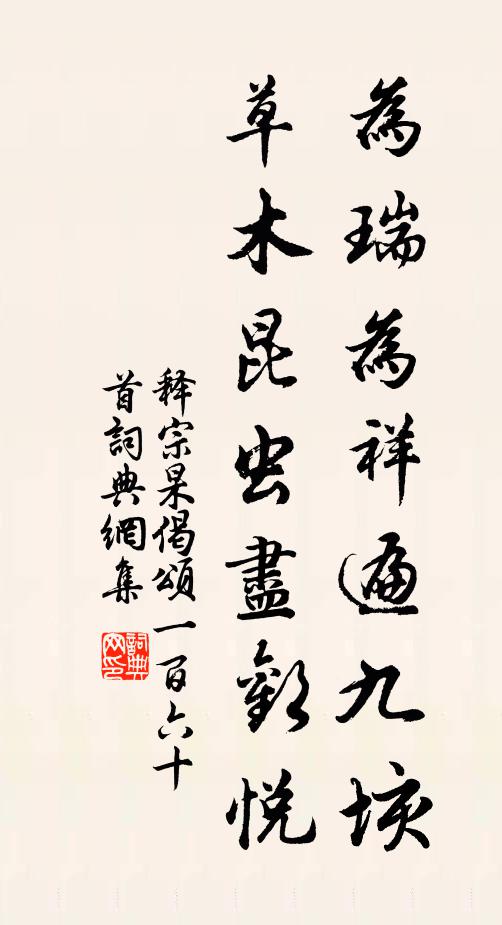 為瑞為祥遍九垓
草木昆虫盡歡悅
释宗杲偈頌一百六十
首詞典網集
詞典网印